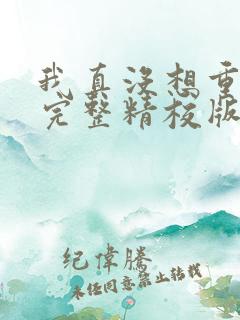 我真没想重
完整精校版
纪伟腾
未经同意禁止转载